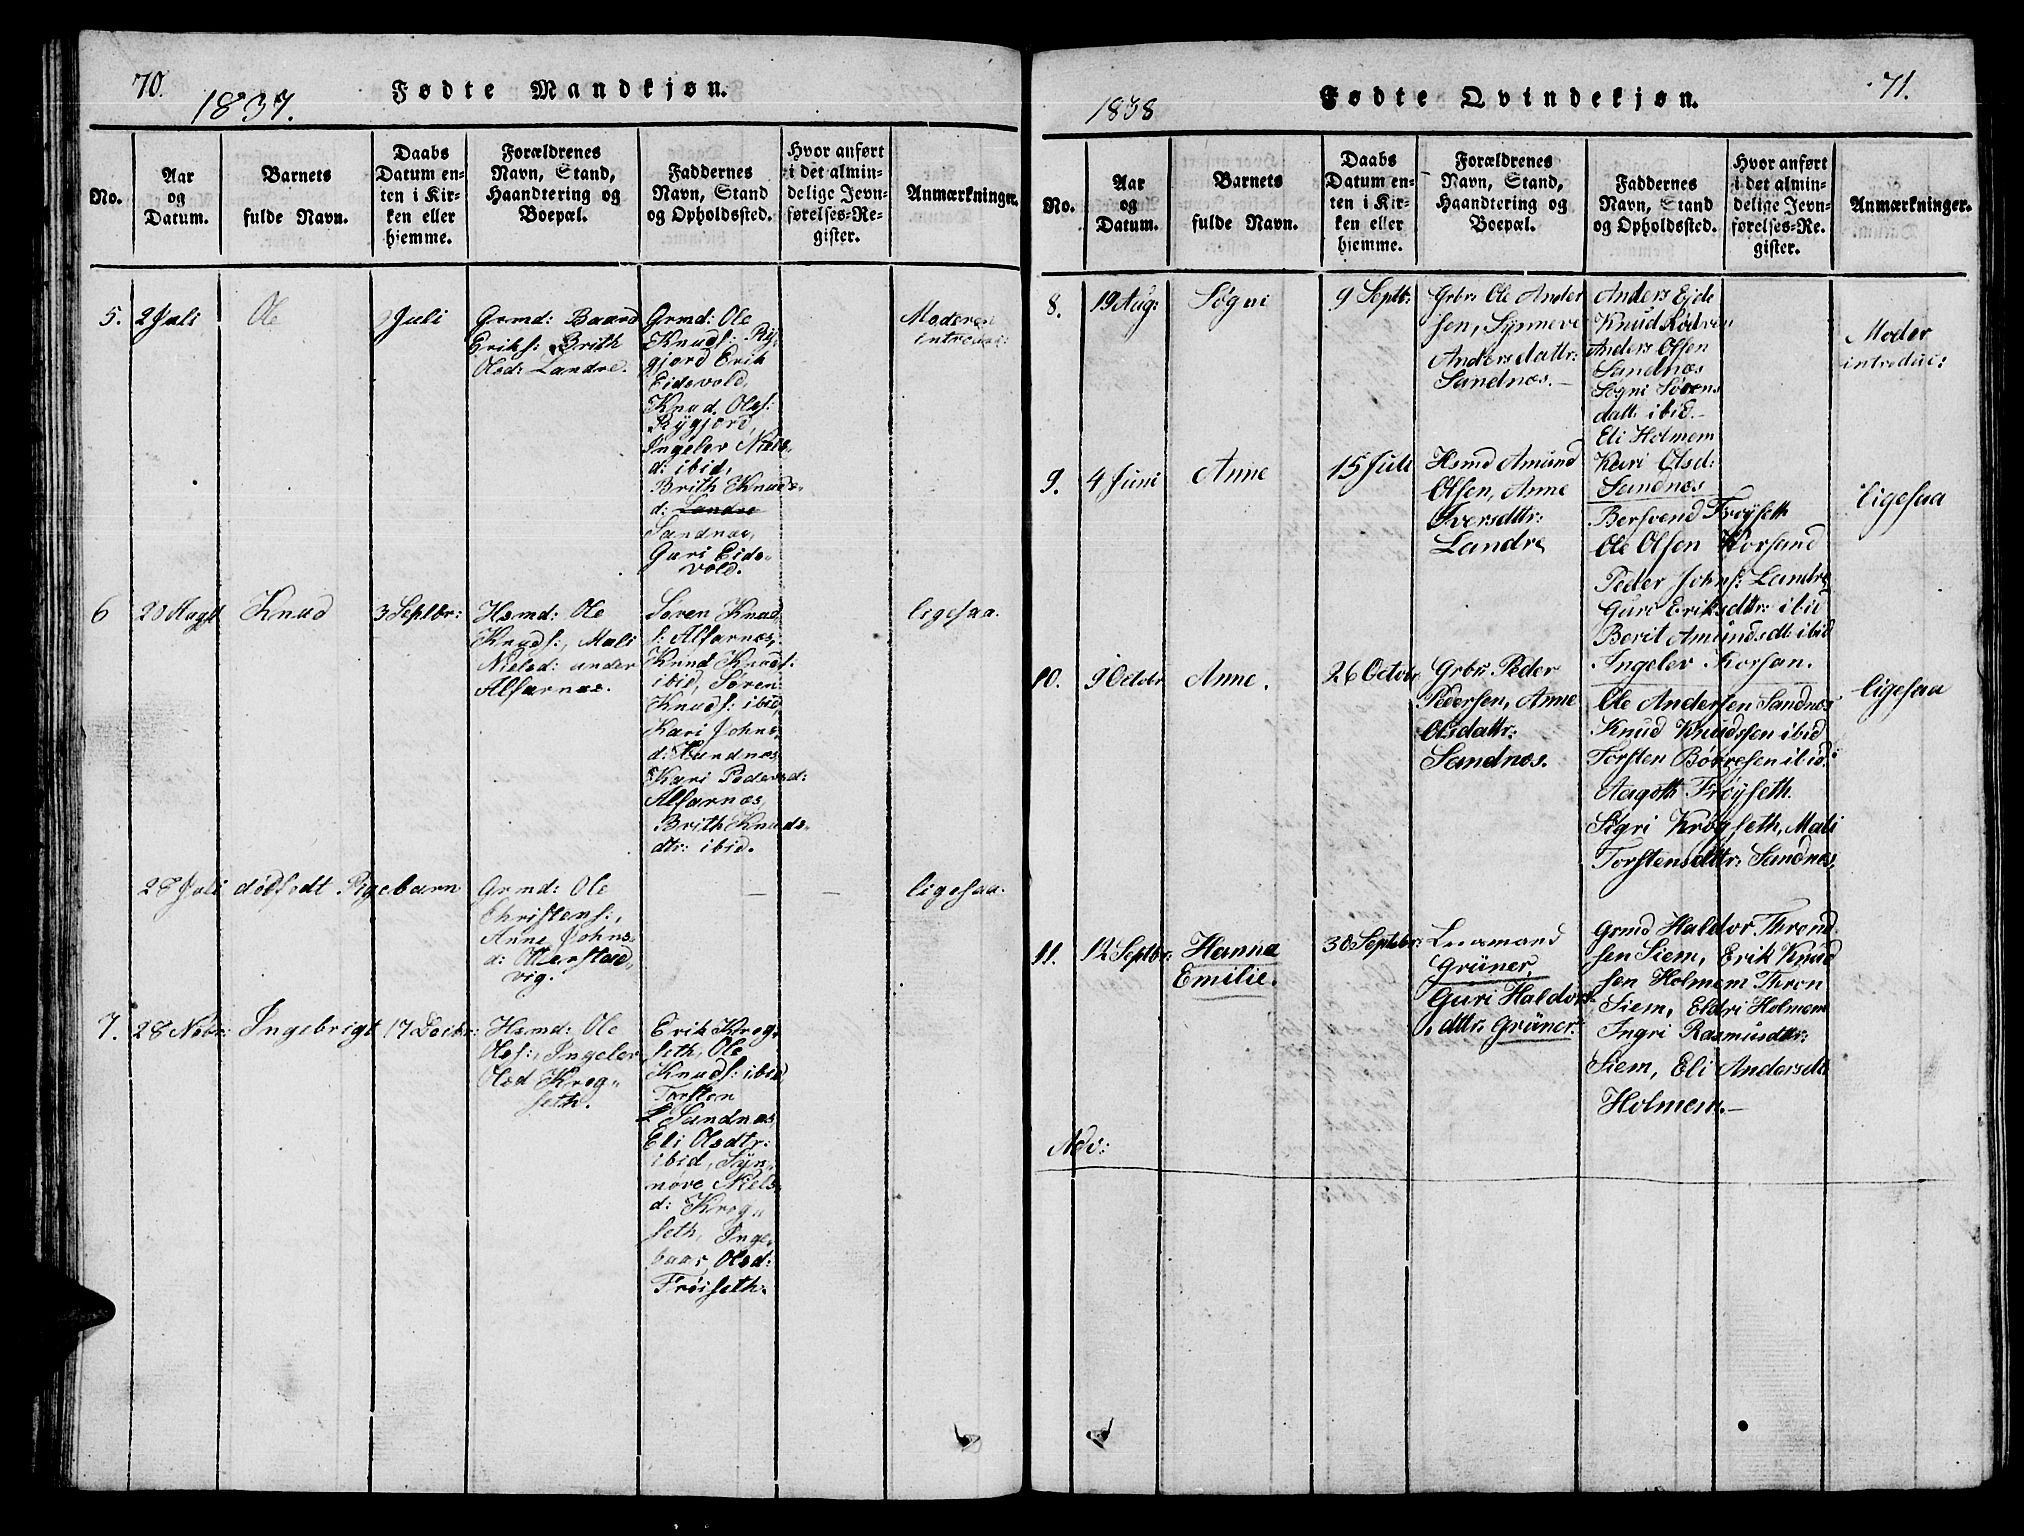 70.
1837.
Fødte Mandkjøn.
No.
Aar
og
Datum.
Barnets
fulde Navn.
Daabs
Datum en-
ten i Kir-
ken eller
hjemme.
Forældrenes
Navn, Stand,
Haandtering og
Boepæl.
Faddernes
Navn, Stand
og Opholdssted.
Hvor anført
i det almin-
delige Jevn-
førelses-Re-
gister.
Anmærkninger.
5.
2 Juli
Ole
Juli
Grmd: Baard
Eriks: Brith
Olsd: Landre.
Grmd: Ole
Knuds: Ry-
gjord Erik
Eidsvold,
Knud Oles:
Rygjord,
Ingeler Niels-
d: ibid,
Brith Knuds-
d: Landre
Sandnæs,
Guri Eids-
vold.
Moderen
introduc:
6
Knud
3 Septbr:
Hsmd: Ole
Knuds:, Mali
Nielsd: under
Alfarnæs.
Søren Knud
s: Alfarnæs,
Knud Knuds:
ibid, Søren
Knuds: ibid,
Kari Johns-
d:
Kari Pedersd:
Alfarnæs,
Brith Knuds-
dtr: ibid.
ligesaa.
28 Juli
dødfødt Pigebarn
Grmd: Ole
Christens:,
Anne Johns-
d:
vig.
ligesaa.
7.
28 Nobr:
Ingebrigt
17 Decbr:
Hsmd: Ole
Oles:, Ingeler
Olsd Krog-
seth.
Erik Krog-
seth, Ole
Knuds: ibid
Torsten
Sandnæs,
Eli Olsdtr:
ibid, Syn-
nøve Niels-
d: Krog-
seth, Inge-
baar Olsd:
Frøiseth.
71.
1838
Fødte Qvindekjøn.
No.
Aar
og
Datum.
Barnets
fulde Navn.
Daabs
Datum en-
ten i Kir-
ken eller
hjemme.
Forældrenes
Navn, Stand,
Haandtering og
Boepæl.
Faddernes
Navn, Stand
og Opholdssted.
Hvor anført
i det almin-
delige Jevn-
førelses-Re-
gister.
Anmærkninger.
8.
19 Aug:
Søgni
9 Septb:
Grbr: Ole Ander
sen, Synneve
Andersdattr:
Sandnæs.
Anders Ejde
Knud Rødven
Anders Olsen
Sandnæs
Søgni Sørens
datt: ibid.
Eli Holmem
Moder
introduc:
9.
4 Juni
Anne
15 Juli
Hsmd Amund
Olsen, Anne
Iversdttr:
Landre
Kari Olsd:
Sandnæs
Bersvend Frøyseth
Ole Olsen Korsand
Peder Johns: Landre
Guri Eriksdttr: ibid
Berit Amundsdt: ibid
Ingeler Korsan.
ligesaa
10.
9 Octobr
Anne.
26 Octobr
Grbr: Peder
Pedersen, Anne
Olsdattr:
Sandnæs.
Ole Andersen Sandnæs
Knud Knudssen ibid
Torsten Børresen ibid:
Aagoth Frøyseth.
Sigri Krøgseth, Mali
Torstensdttr: Sandnæs,
ligesaa
11.
12 Septbr:
Hanna
Emilie.
30 Septbr:
Lensmand
Grüner,
Guri Haldors-
dttr: Grüner.
Grmd Haldor Thrond
sen Siem, Erik Knud
sen Holmem Thron
Siem, Eldri Holmem
Ingri Rasmusdttr:
Siem, Eli Andersdt
Holmem.
Nov: